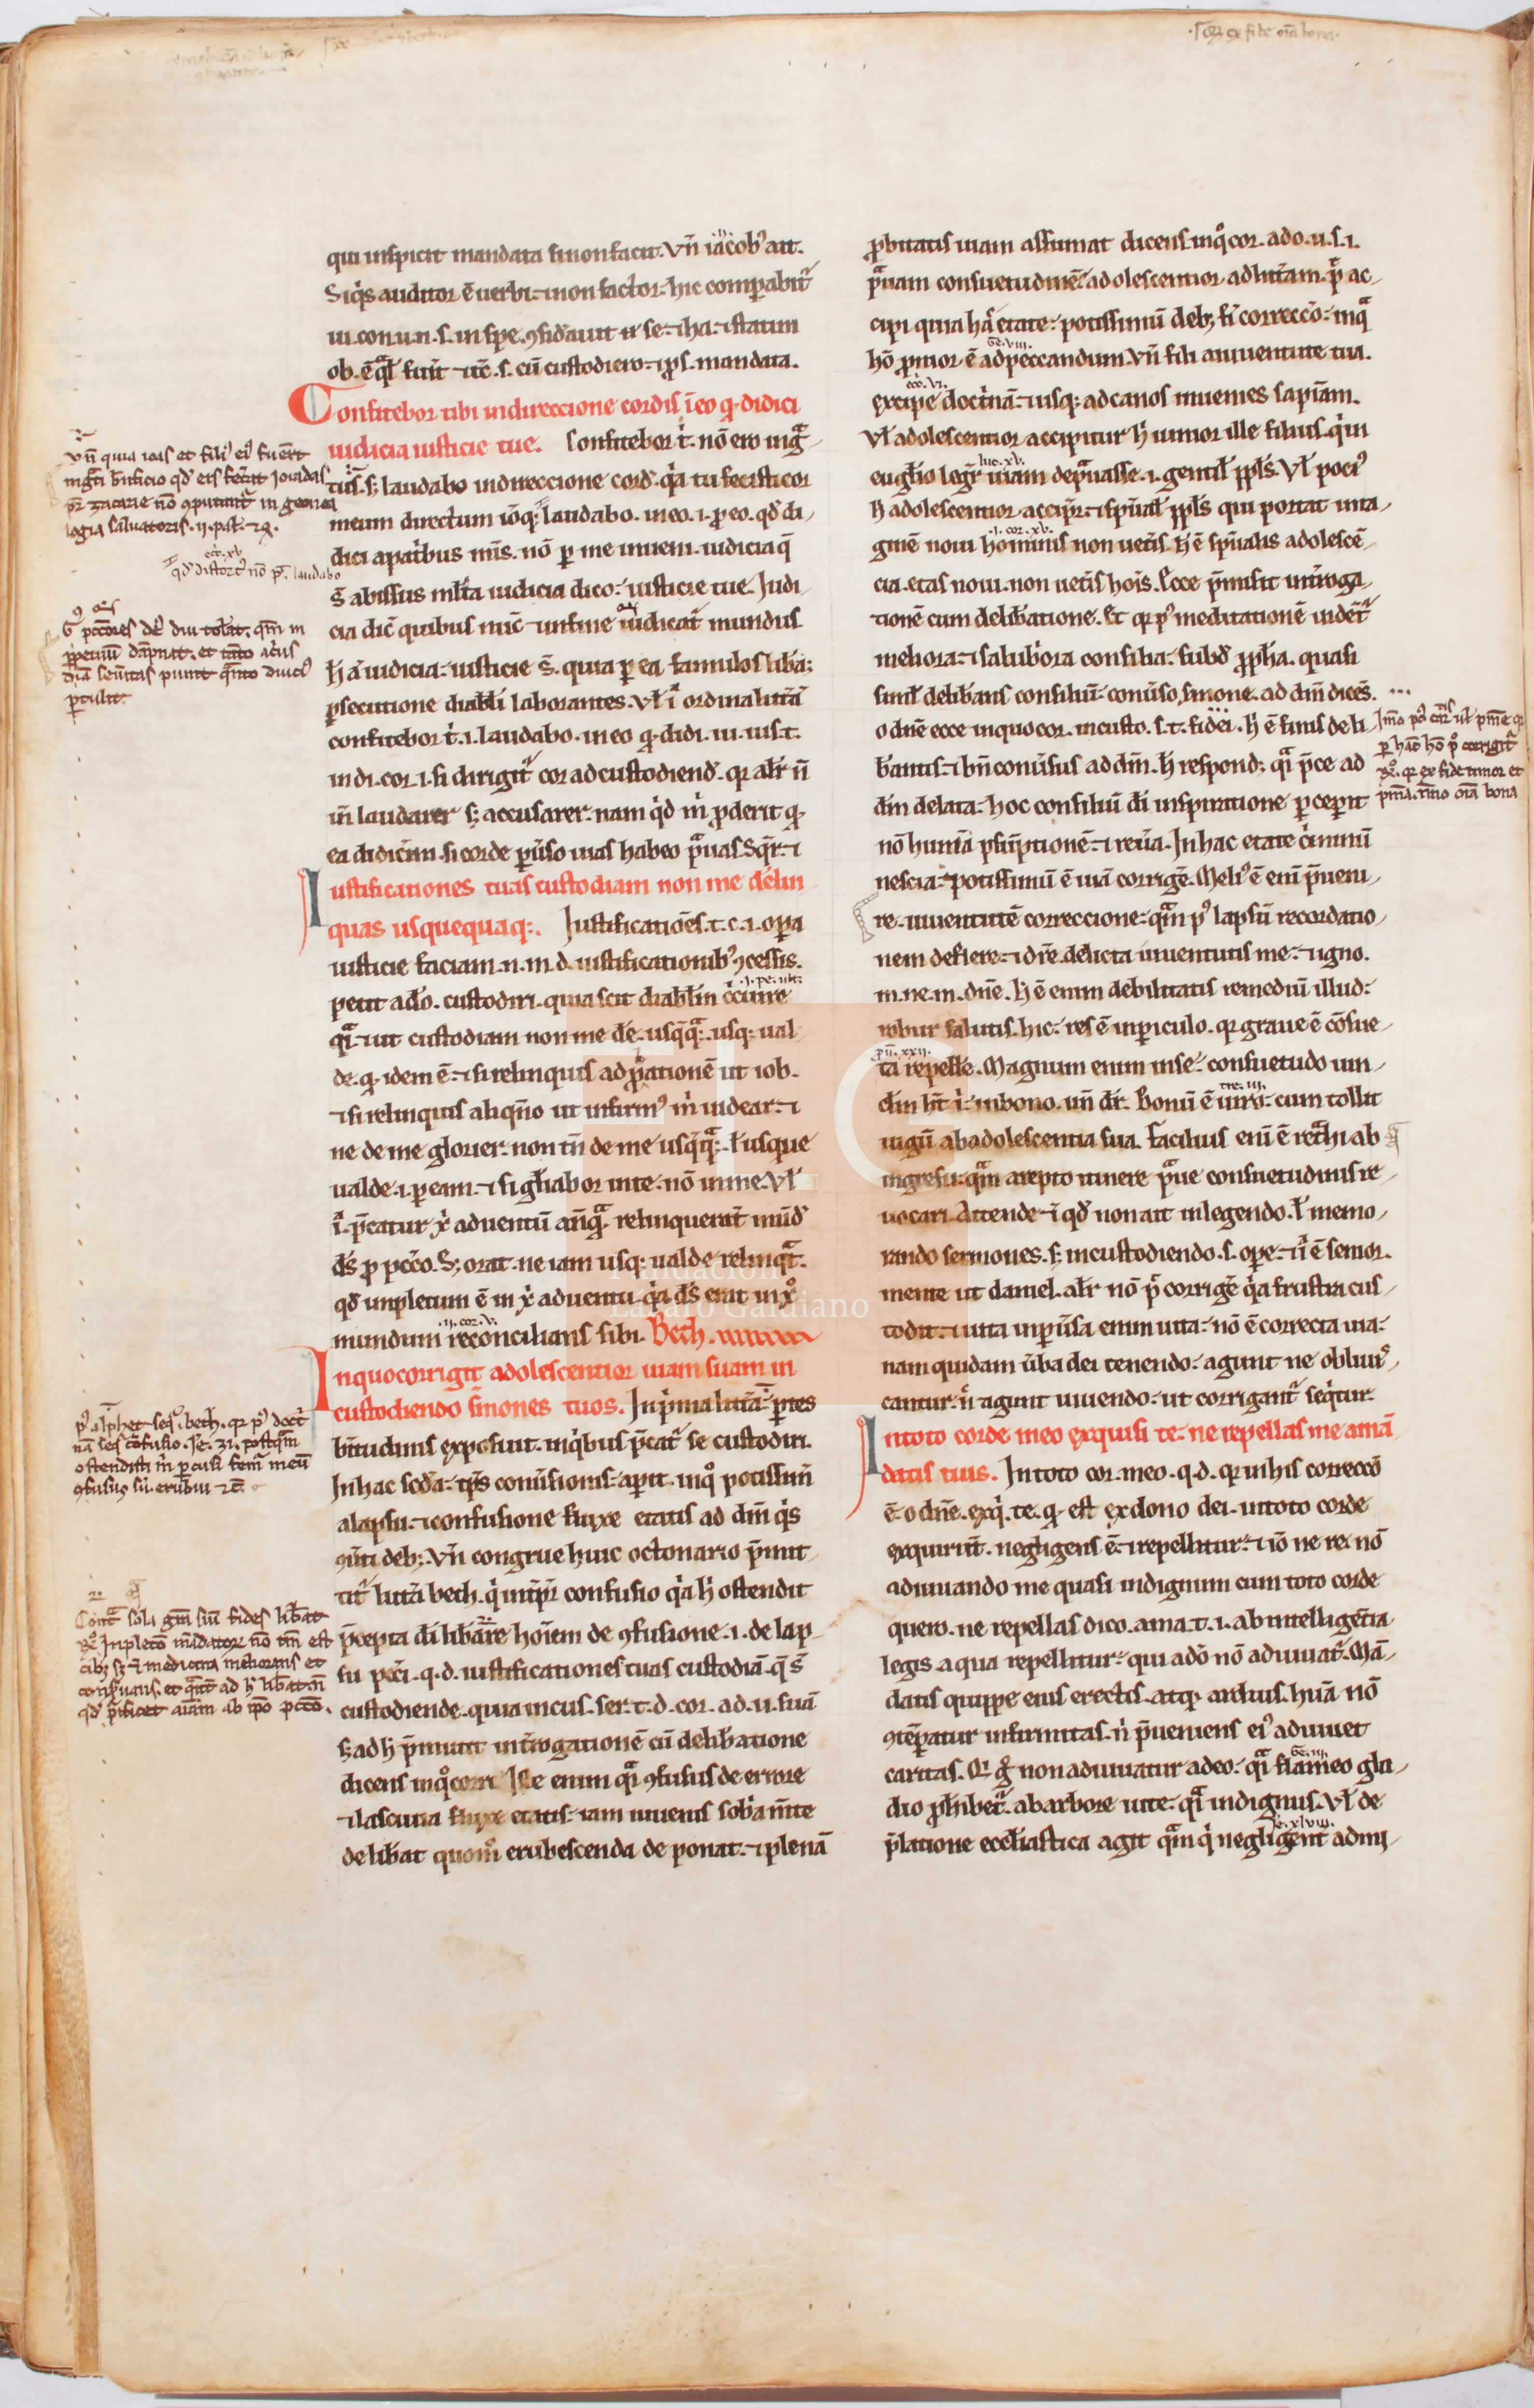 qui inspicit mandata si non facit. Vñ iacob᷒ ait.
Siq̇s auditor ē uerbi. ⁊ non factor. hic comparabit᷑
ui. con. u. n. s. in spe. ꝯsid̃auit .n. se. ⁊ ha. ⁊ statim
ob. ē q̃l fuit ⁊ĉ. s. cū custodiero. ⁊ ip̃s. mandata.
Confitebor tibi in direccione cordis ī eo ꝙ didici
iudicia iusticie tue. Confitebor t̉. nō ero ingᷓ
tus. sꝫ laudabo in direccione cord᷒. q̉a tu fecisti cor
meum directum iōqꝫ laudabo. in eo .i. ꝓ eo. qd̓ di
dici a patribus meis. nō ꝑ me inueni. iudicia q̄
s̄ abissus ml̃ta iudicia dico. iusticie tue. Judi
cia dic̄ quibus nūc ⁊ in fine iudicat᷑ mundus
h̄ aū iudicia. iusticie s̄. quia ꝑ ea famulos lib̃aꝫ
ꝑsecutione diaboli laborantes. Vł i ordina lit̃am
confitebor t̉ .i. laudabo. in eo ꝙ didi. iu. ius. t.
in di. cor .i. si dirigit᷑ cor ad custodiend̓. qr alr̃ ñ
iñ laudarer sꝫ accusarer. nam q̉d m̉ ꝓderit ꝙ
ea didic̃im. si corde ꝑu̓so uias habeo pᷓuas Sqr̃. ⁊
Iustificationes tuas custodiam non me derelin
quas usquequaqꝫ. Iustificatiōes. t. c. i. oꝑa
iusticie faciam. n. m. d. iustificationibꝫ ꝯcessis.
petit a dō. custodiri. quia scit diabłm c̉cuire
.i. pe. ult.
qᷓi. ⁊ ut custodiam non me de. usq̄qᷓ. usqꝫ ual
de. ꝙ idem ē. ⁊ si relinquis ad ꝓbationē ut iob.
⁊ si relinquis aliqn̄o ut infirm᷒ m̉ uidear. ⁊
ne de me glorier. non tñ de me usq̄qᷓ. ł usque
ualde .i. ꝑeam. ⁊ si gl̃iabor in te. nō in me. Vł
i. p̄catur xp̄i aduentū anqᷓ relinquerat̃ mūd᷒
ds̄ ꝓ pcc̄o. Sꝫ orat. ne iam usqꝫ ualde relinqᷓt.
qd̓ inpletum ē in xp̄i aduentu. q̉a ds̄ erat in xp̊
.ii. cor. v.
mundum reconcilians sibi. Beth.
In quo corrigit adolescentior uiam suam in
custodiendo s̃mones tuos. In p̉ma lit̃a ꝑtes
bt̃itudinis exposuit. in q̉bus p̄cat᷑ se custodiri.
In hac sc̄da. tp̄s conu̓sionis. aꝑit. in q̊ potissimū
a lapsu. ⁊ confusione fluxe etatis ad dm̄ q̉s
ꝯu̓ti debꝫ. Vñ congrue huic octonario p̄mit
tit᷑ lit̃a beth. q̉ int̃p̃r confusio q̉a h̄ ostendit
p̄cepta di lib̃are hoīem de ꝯfusione .i. de lap
su pcc̄i. q. d. iustificationes tuas custodiā. q̄ s̄
custodiende. quia in cus. ser. t. d. cor. ad. u. suā
sꝫ ad h̄ p̄mittit int̃rogationē cū delib̃atione
dicens in q̊ corri Ille enim qᷓi ꝯfusus de errore
⁊ lasciuia fluxe etatis. iam iuuenis sobria m̄te
delib̃at quom̊ erubescenda deponat. ⁊ plenā
ꝓbitatis uiam assumat dicens. in q̊ cor. ado. u. s. i.
pᷓuam consuetudinē. adolescentior. ad lit̃am. pᷓ ac
cipi quia hac etate. potissimū debꝫ fi correcc̄o. in qᷓ
hō ꝓnior ē ad peccandum. Vñ fili a iuuentute tua.
ge. viii.
ecc. vi.
excipe doctrinā. ⁊ usqꝫ ad canos inuenies sapīam.
Vł adolescentior accipitur h̄ iunior ille filius. q̉ in
luc. xv.
eugłio legr̃ uiam deprauasse .i. gentił ppłs. Vł poci᷒
h̄ adolescentior accip̃r. ⁊ spūał ppłs qui portat ima
.i. cor. xv.
ginē noui hominis non ueteris. h̄ ē spūalis adolescē
cia. etas noui. non uet̃is hoīs. Ecce p̄misit int̃roga
tionē cum delib̃atione. Et qr p᷒ meditationē uidēt᷑
meliora. ⁊ salubriora consilia. subd̓ ꝓpha. quasi
simił delib̃ans consiliū. conu̓so. s̃mone. ad dm̄ dicēs.
o dñe ecce in quo cor. in custo. s. t. fidei. h̄ ē finis deli
b̃antis. ⁊ bñ conu̓sus ad dm̄. h̄ respondꝫ qᷓi p̄ce ad
dm̄ delata. hoc consiliū di inspiratione ꝑceꝑit
nō humā p̃sūptionē. ⁊ reūa. In hac etate c̉minū
nescia. potissimū ē uiā corrigē. Meli᷒ ē enī p̄ueni
re. iuuentutē correccione. qᷓm p᷒ lapsū recordatio
nem deflere. ⁊ dr̃e delicta iuuentutis me. ⁊ igno.
m. ne. m. dñe. h̄ ē enim debilitatis remediū illud.
robur salutis. hic. res ē in ꝑiculo. qr graue ē cōsue
p̄u. xxii.
ta repelle. Magnum enim in se. consuetudo uin
dim ht̄ i. in bono. uñ dr̃. Bonū ē uiro. cum tollit
tre. iii.
iugū ab adolescentia sua. Facilius enī ē retᷓhi ab
ingressu. qᷓm arepto itinere pᷓue consuetudinis re
uocari. Attende ⁊ qd̓ non ait in legendo. ł memo
rando sermones. sꝫ in custodiendo. s. oꝑe. ⁊ i ē senior.
mente ut daniel. alr̃ nō p̄ corrigē q̉a frustra cus
todit. ⁊ uita inꝑu̓sa enim uita. nō ē correcta uia.
nam quidam u̓ba dei tenendo. agunt ne obliuis
cantur. ñ agunt uiuendo. ut corrigant᷑ seq̉tur.
In toto corde meo exquisi te. ne repellas me a mā
datis tuis. In toto cor. meo. q. d. qr in his correccō
ē. o dñe. exq̉. te. ꝙ est ex dono dei. ut toto corde
exquirit̃. negligens ē. ⁊ repellitur. ⁊ iō ne re. nō
adiuuando me quasi indignum cum toto corde
quero. ne repellas dico. a ma. t. i. ab intelligētia
legis a qua repellitur. qui a dō nō adiuuat᷑. Mā
datis quippe eius erectis. atqꝫ arduis. huā nō
ꝯtēꝑatur infirmitas. n̉ p̄ueniens ei᷒ adiuuet
caritas. Qr g̊ non adiuuatur a deo. qᷓi flāmeo gla
ge. iii.
dio ꝓhibet᷑. ab arbore uite. qᷓi indignus. Vł de
ie. xlviii.
p̄latione eccl̃iastica agit qᷓm q̉ negligent᷑ admi
vñ quia ioas et filii ei᷒ fuer̃t
ingrati b̄nficio qd̓ eis fec̃it Joiadas
pr̃ zacarie nō ꝯputant᷑ in genea
logia saluatoris. ii. pał. 24.
ecc. xv
G᷒ pcc̄ores de᷒ diu tolᷓat. qm̄ in
ꝑpetuū dāpnat. et tanto aĉius
dīa seu̓itas punit qᷓnto diuci᷒
ꝑtulit
p᷒ alphet seq᷑. beth. qr p᷒ doct̉
nā seq̃ cōfusio. Je. 31. postqᷓm
ostendisti m̉ ꝑcussi fem᷒ meū
ꝯfusus sū. erubui ⁊c̄.
qᷓ Inpletō mādatorꝝ nō tm̄ est
cibꝫ sꝫ ⁊ medicina meliorans et
qd̓ p̉ficet aīam ab ip̄o pcc̄o.
ꝑ hac hō p᷒ corrigit᷑
qr ex fide timor et
oīa bona
ex fide oīa bona
Fundación
Lázaro Galdiano